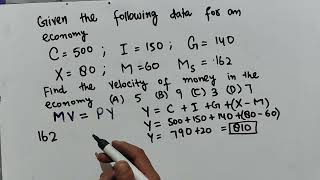 Given the following data for an
economy
C = 500 ; I = 150 ; G = 140
X = 80 ; M = 60 Ms = 162
Find the velocity of money in the
economy (A) 5 (B) 9 (C) 3 (D) 7
MV = PY
162
Y = C + I + G + (X - M)
Y = 500 + 150 + 140 + (80 - 60)
Y = 790 + 20 = 810